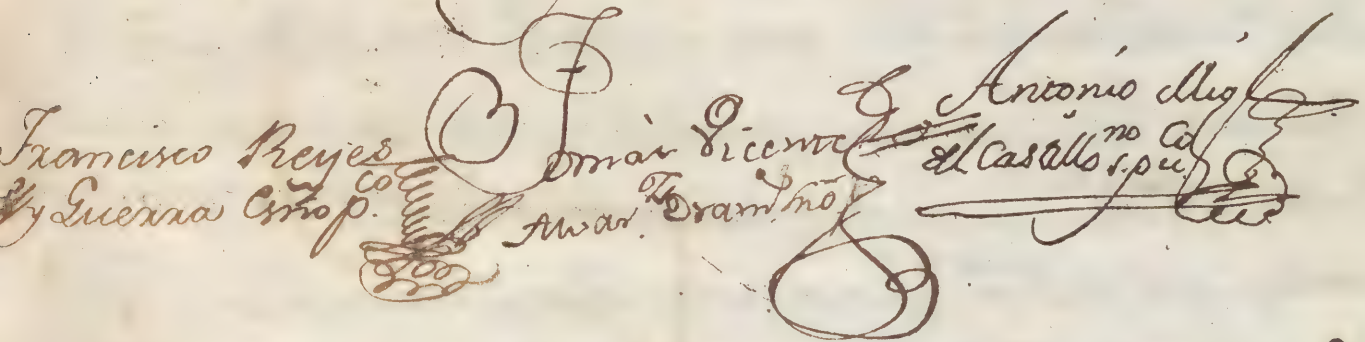 Francisco Reyes
y Guerra Esño p.co
Tomàs Vicente
Alvar.
Antonio Mig
del Castillo
no s. pu. co